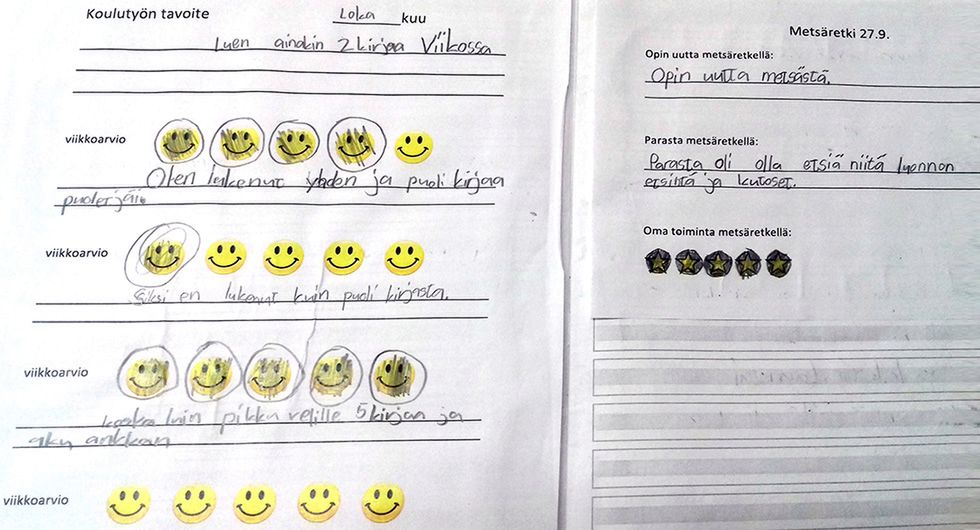 Koulutyön tavoite Loka kuu
Luen ainakin 2 kirjaa Viikossa
viikkoarvio
Olen lukenut yhden ja puoli kirjaa
viikkoarvio
Siksi en lukenut kuin puoli kirjasta.
viikkoarvio
koska luin pikku velille 5 kirjaa ja
aku ankkaa
viikkoarvio
Metsäretki 27.9.
Opin uutta metsäretkellä:
Opin uutta metsästä.
Parasta metsäretkellä:
Parasta oli olla etsiä niitä luonnon
etsintä ja kutoset.
Oma toiminta metsäretkellä: